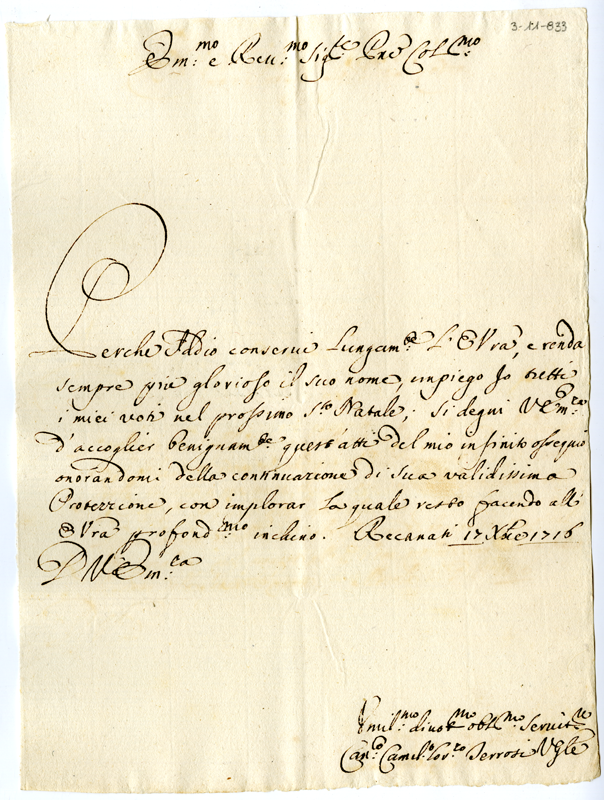 3-11-833
Em:mo e Reu:mo Sigre Pne Col:mo
Perche Iddio conserui lungam:te L'E Vra, e renda
sempre più glorioso il suo nome, impiego Io tutti
i miei voti nel prossimo Sto Natale; Si degni V Em:za
d'accoglier benignam:te quest'atti del mio infinito ossequio
onorandomi della continuazione di sua validissima
Protezzione, con implorar la quale resto facendo all'
E Vra profond:mo inchino. Recanati 17 Xbre 1716
D V Em:za
Vmil:mo diuot:mo obbl:mo Seruit:re
Can:co Camil:o